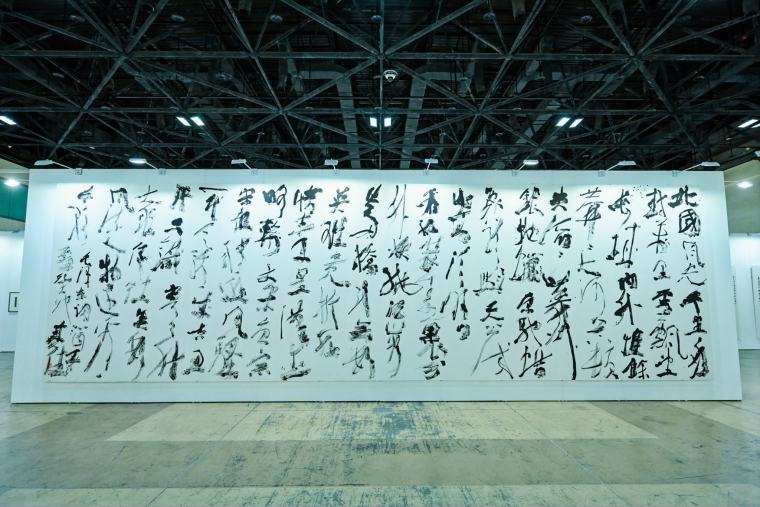 北國風光千里冰
封萬里雪飄望
長城內外惟餘
莽莽大河上下頓
失滔滔山舞
銀蛇原馳蠟
象欲與天公試
比高須晴日
看紅裝素裹分
外妖嬈江山
如此多嬌引無數
英雄競折腰
惜秦皇漢武
略輸文采唐宗
宋祖稍遜風騷
一代天驕成吉思
汗只識彎弓射
大雕俱往矣數
風流人物還看
今朝
毛澤東詞